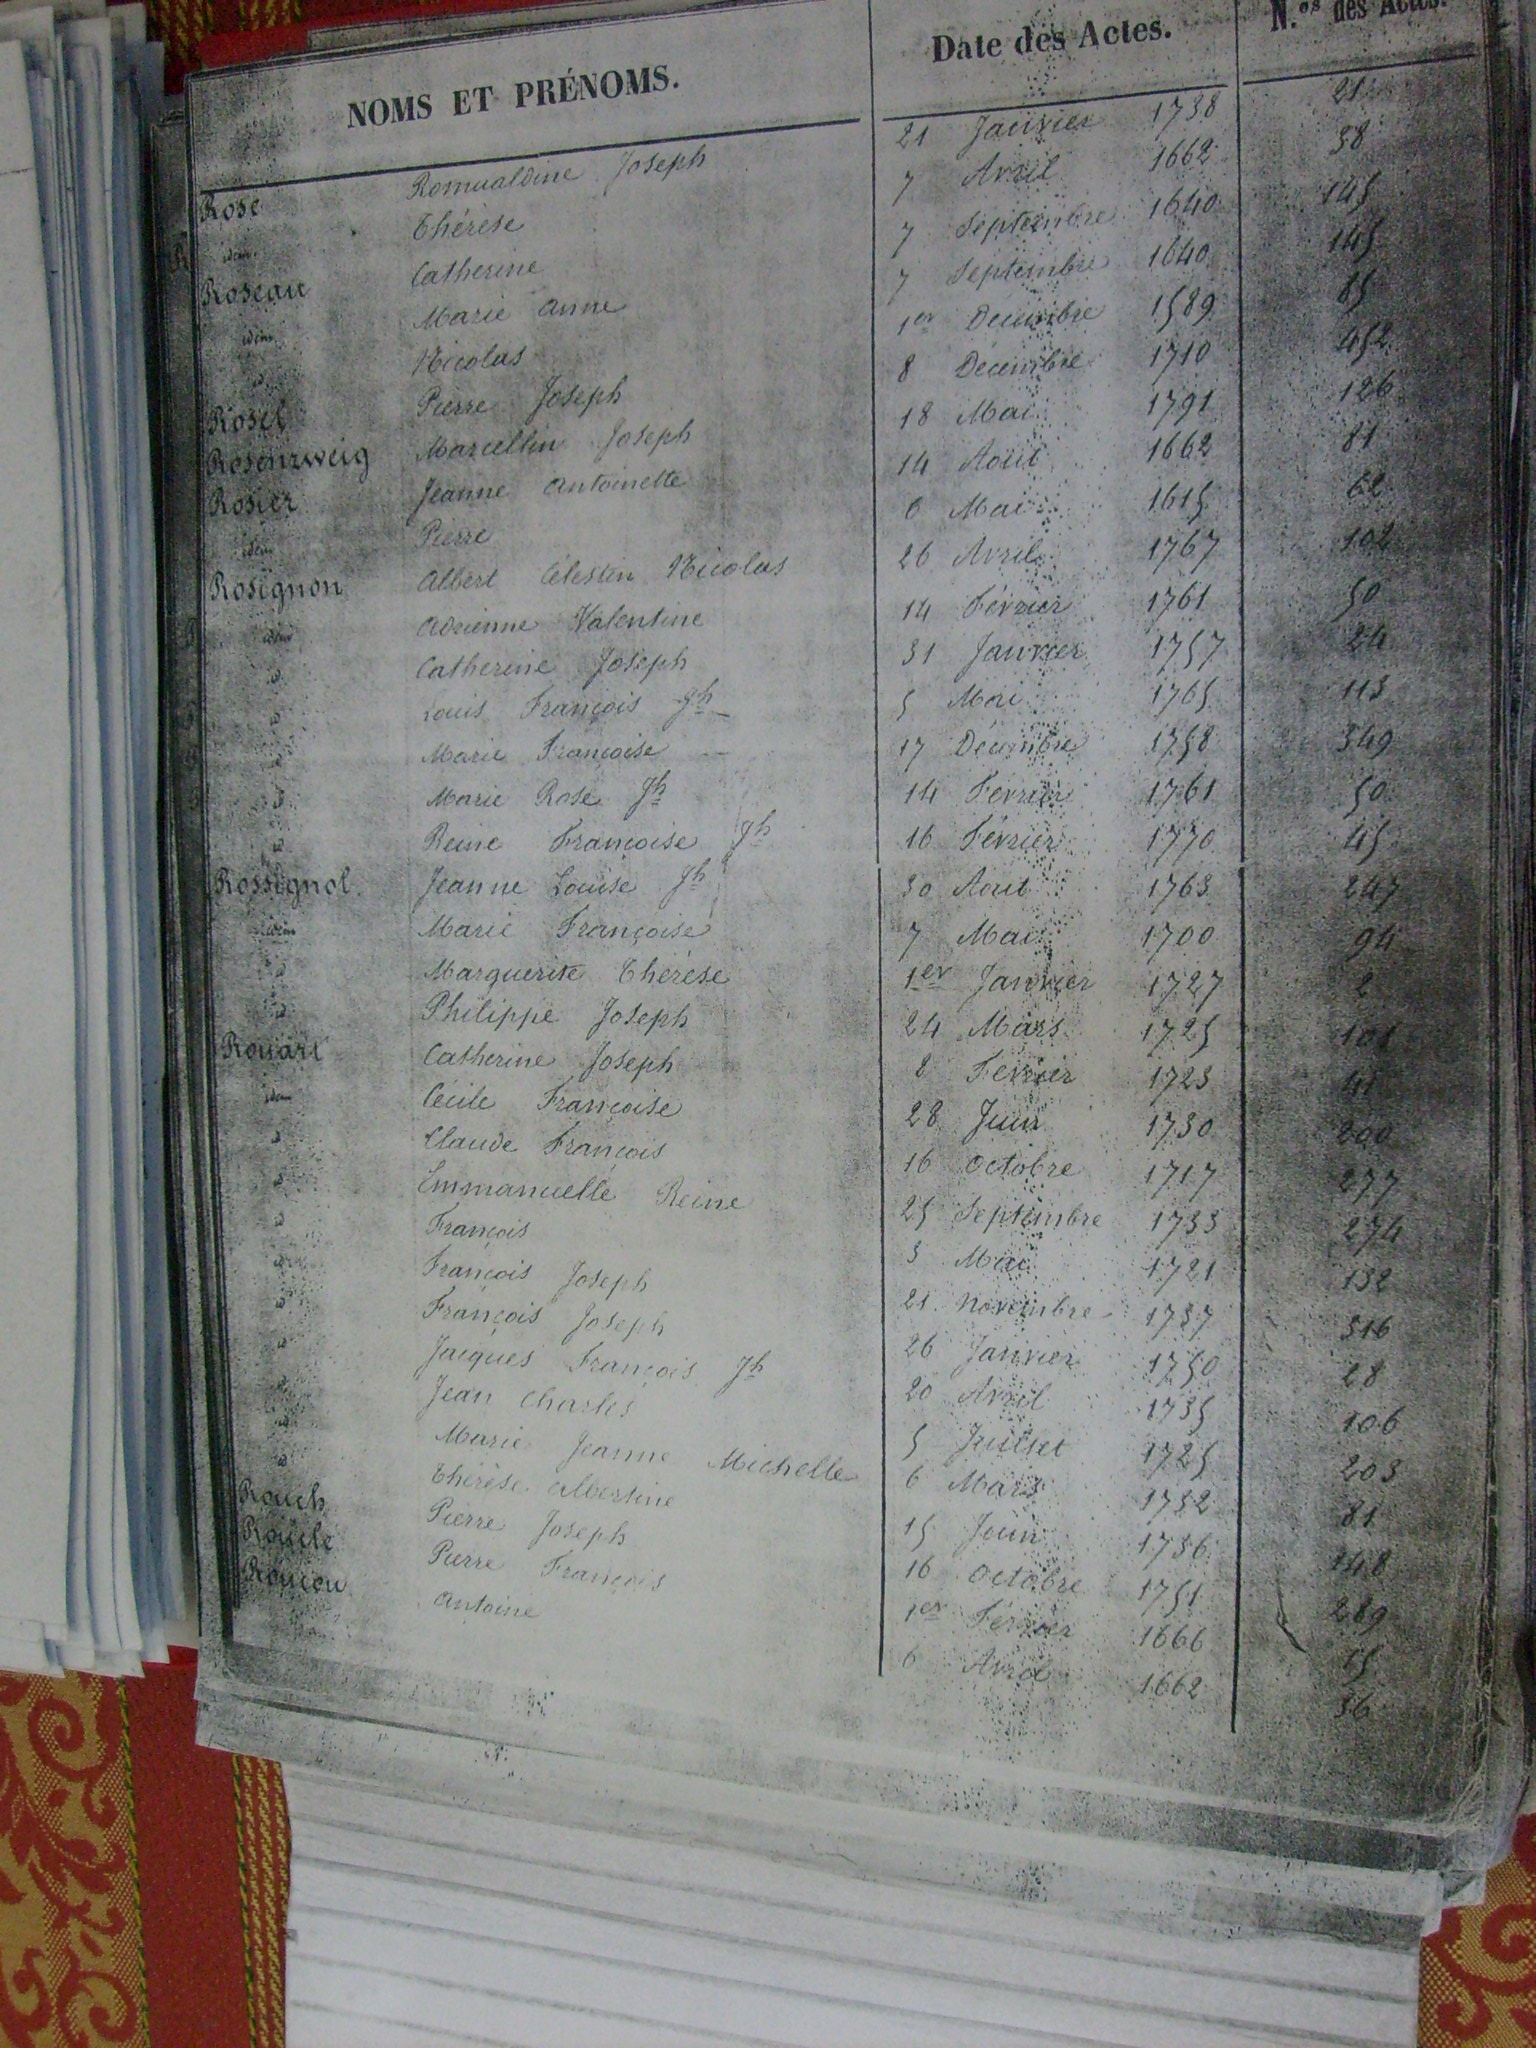 NOMS ET PRÉNOMS. Date des Actes. N.os des Actes.
Rose Romualdine Joseph 21 Janvier 1738 21
idem Thérèse 7 Avril 1662 38
Roseau Catherine 7 Septembre 1640 145
idem Marie Anne 7 Septembre 1640 145
id Nicolas 1er Décembre 1589 85
Rosel Pierre Joseph 8 Décembre 1710 452
Rosenzweig Marcellin Joseph 18 Mai 1791 126
Rosier Jeanne Antoinette 14 Août 1662 81
idem Pierre 6 Mai 1615 62
Rosignon Albert Célestin Nicolas 26 Avril 1767 102
idem Adrienne Valentine 14 Février 1761 50
id Catherine Joseph 31 Janvier 1757 24
id Louis François Jh 5 Mai 1765 113
id Marie Françoise 17 Décembre 1758 349
id Marie Rose Jh 14 Février 1761 50
id Reine Françoise Jh 16 Février 1770 45
Rossignol Jeanne Louise Jh 30 Aout 1763 247
idem Marie Françoise 7 Mai 1700 94
id Marguerite Thérèse 1er Janvier 1727 2
id Philippe Joseph 24 Mars 1725 101
Rouart Catherine Joseph 8 Février 1723 41
idem Cécile Françoise 28 Juin 1730 200
id Claude François 16 Octobre 1717 277
id Emmanuelle Reine 25 Septembre 1733 274
id François 3 Mai 1721 132
id François Joseph 21 Novembre 1737 316
id François Joseph 26 Janvier 1750 28
id Jacques François Jh 20 Avril 1735 106
id Jean Charles 5 Juillet 1725 203
id Marie Jeanne Michelle 6 Mars 1732 81
id Thérèse Albertine 15 Juin 1736 148
Rouch Pierre Joseph 16 Octobre 1751 289
Pierre François 1er Février 1666 15
Roucou Antoine 6 Avril 1662 36